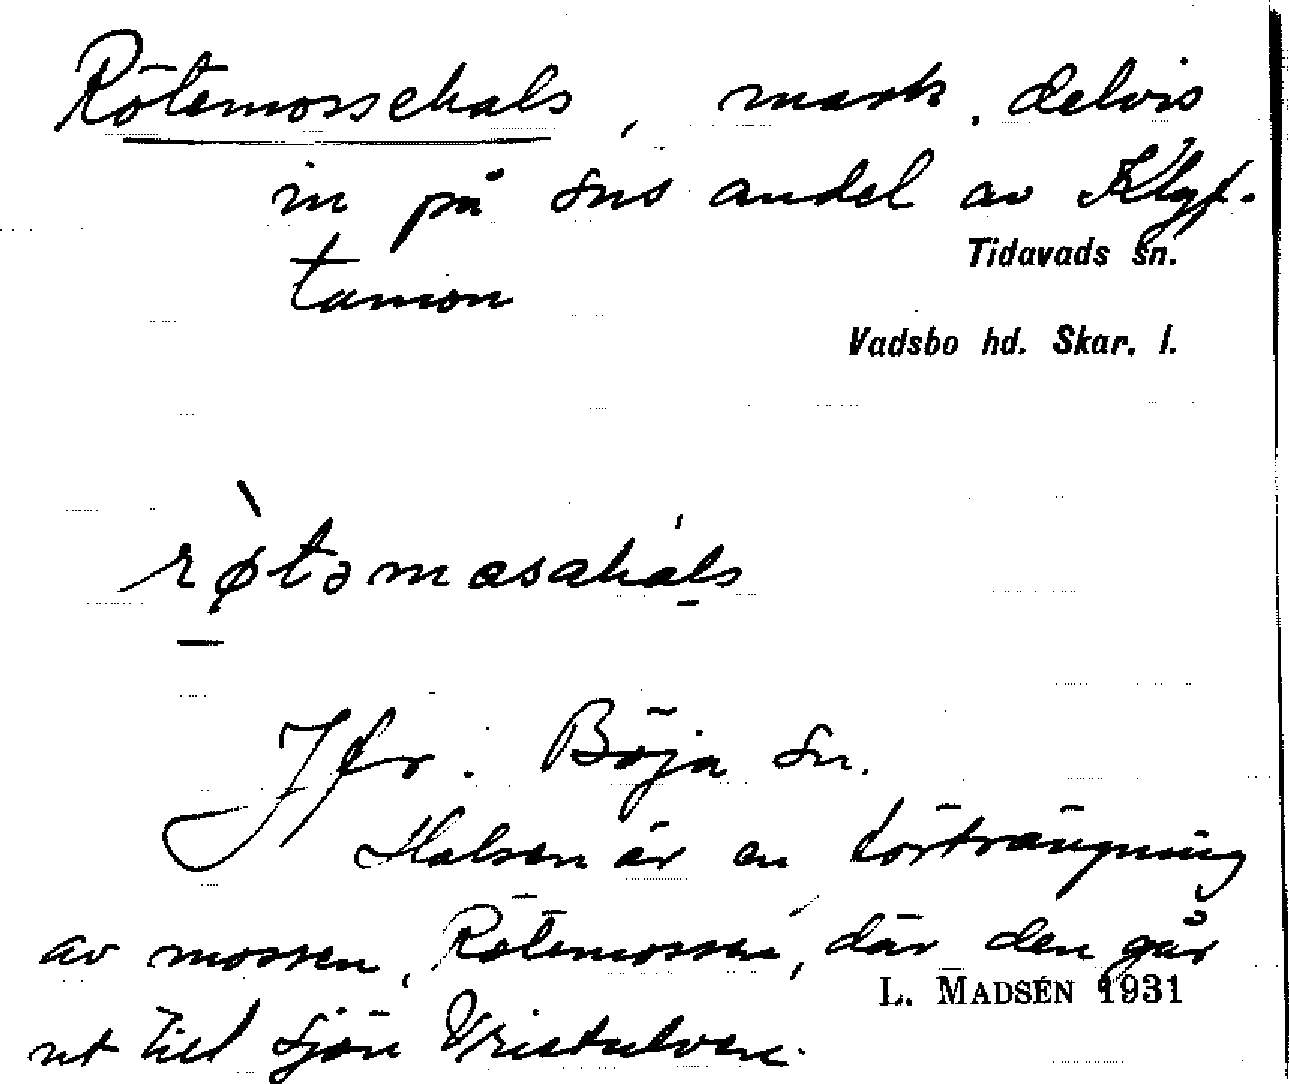 Rötemossehals, mark, delvis
in på sns andel av Klyf-
tamon
Tidavads sn.
Vadsbo hd. Skar. l.
rø̀təmɷsahals
Jfr. Böja sn.
Halsen är en förträngning
av mossen, Rötemossen, där den går
ut till sjön Vristulven.
L. MADSÉN 1931